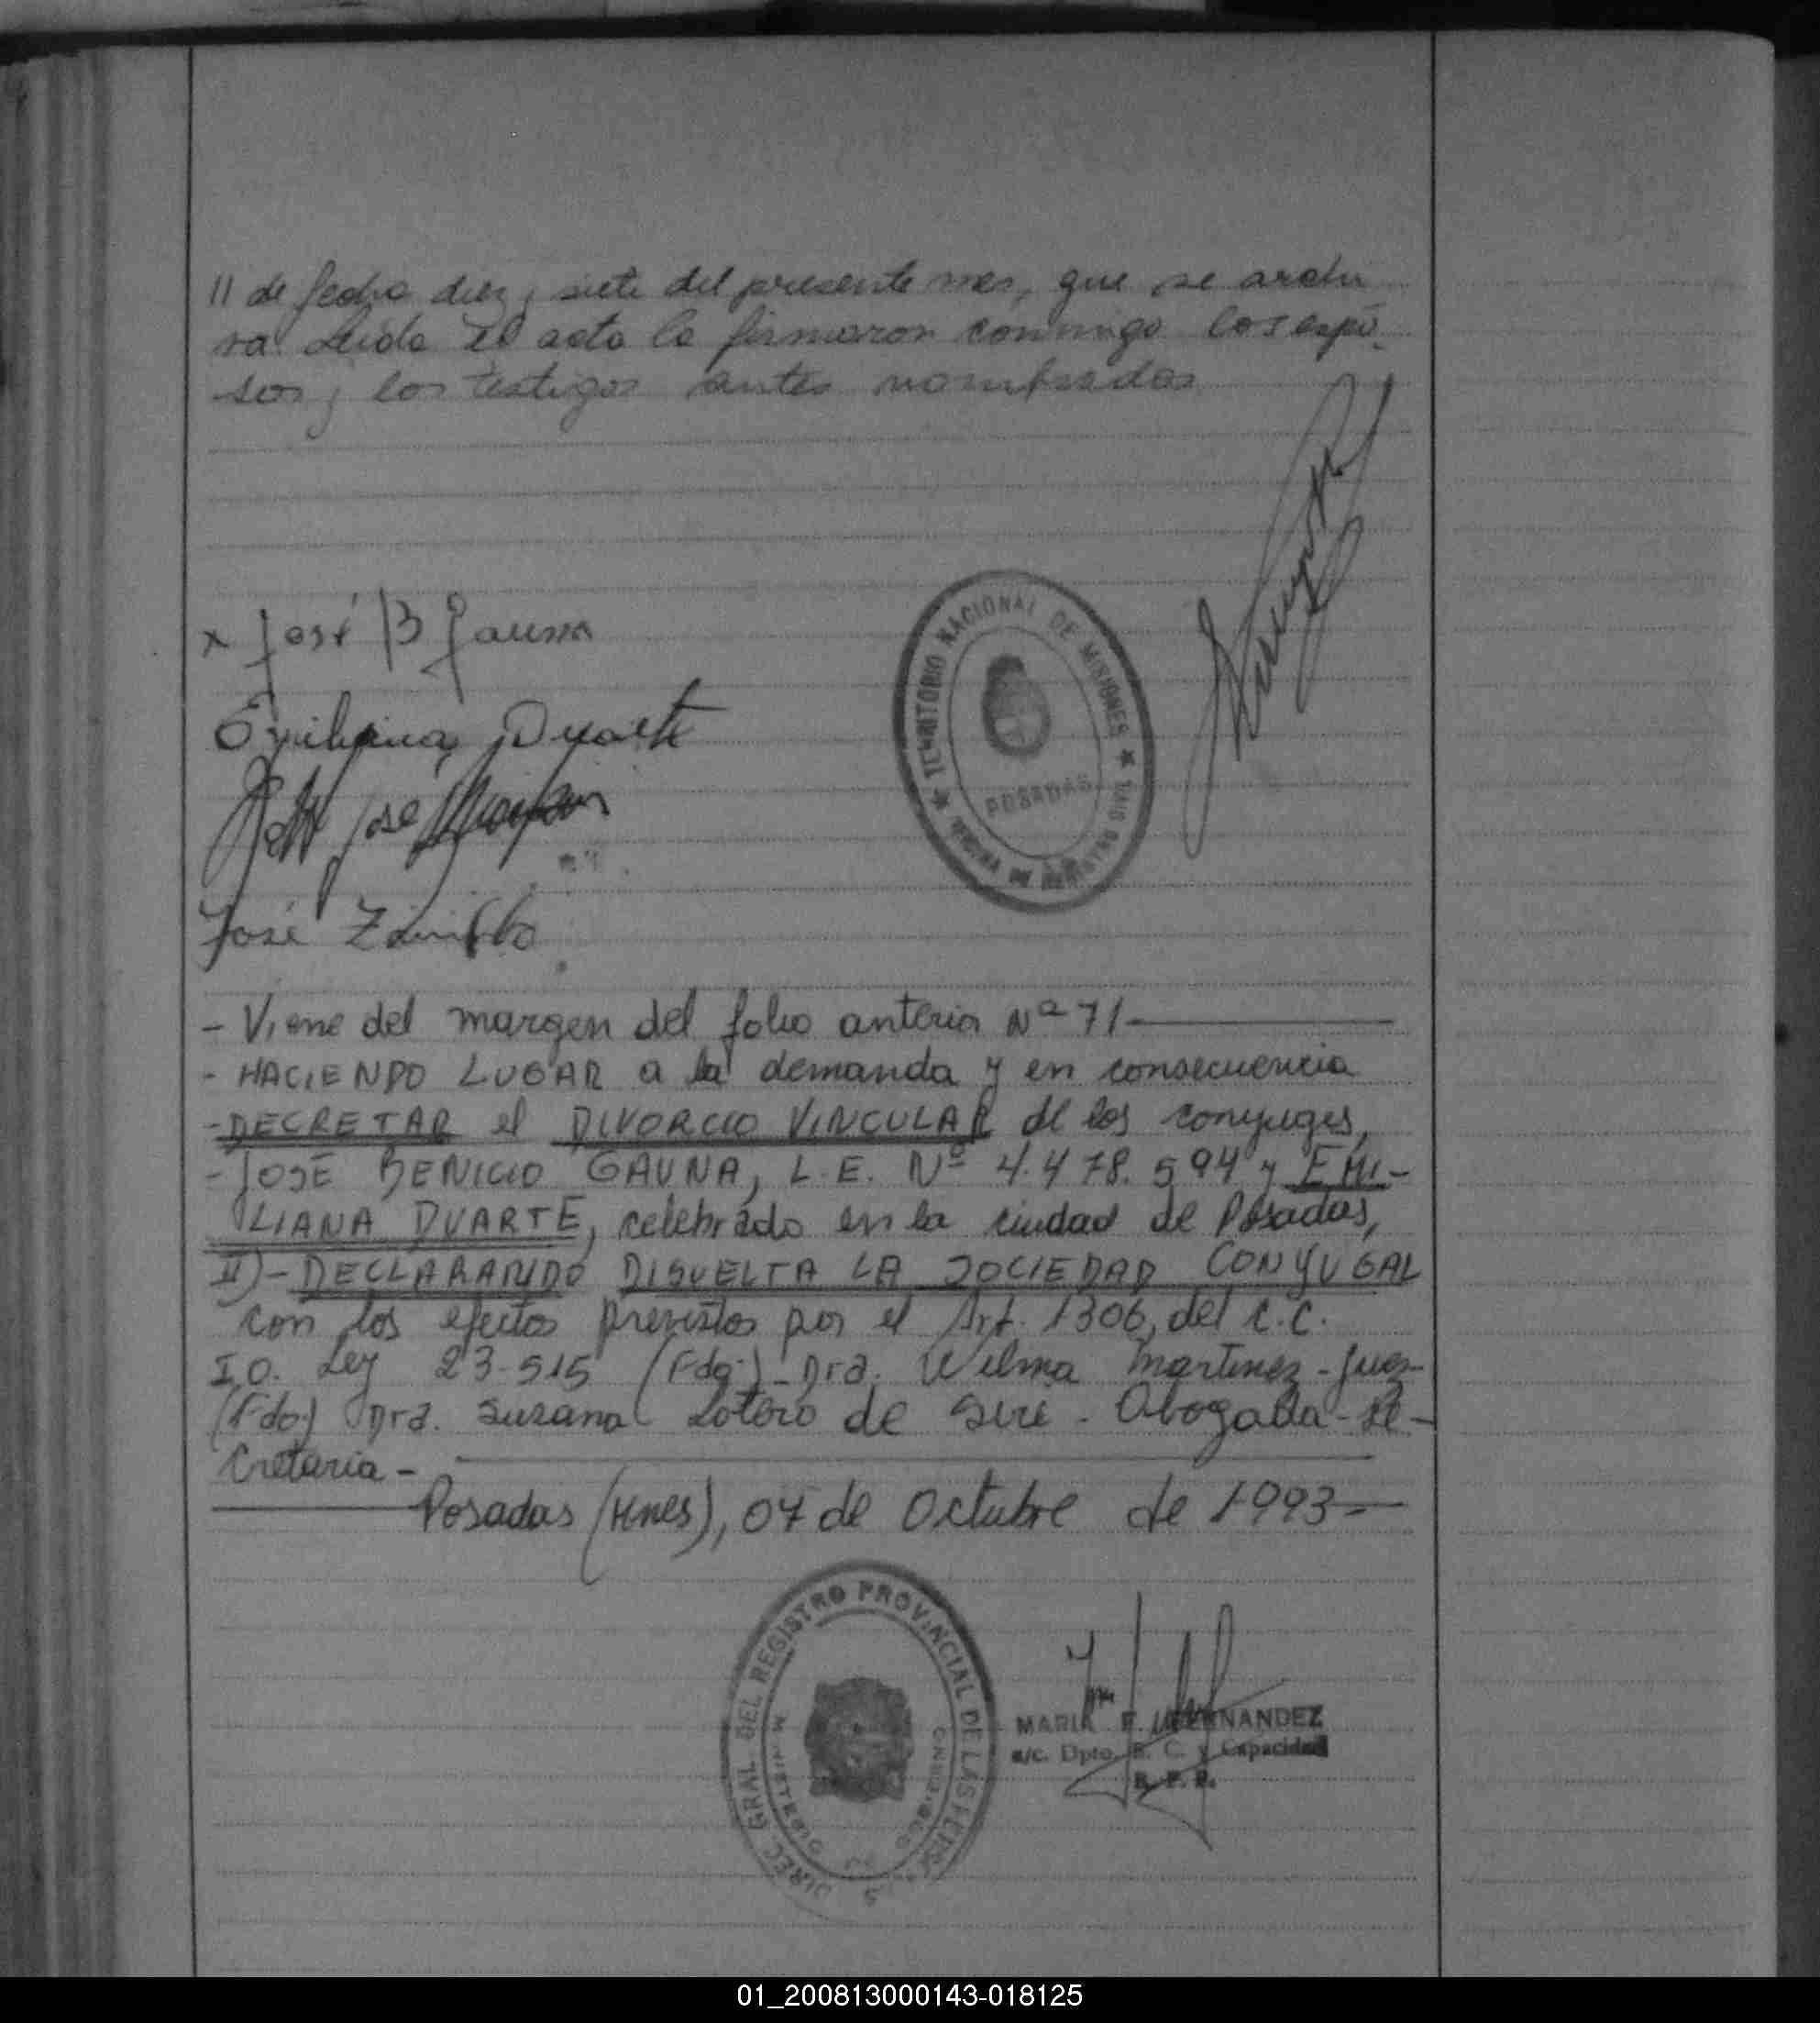 // de fecha diez y siete del presente mes, que se archi
va. Leida el acta la firmaron conmigo los espo-
sos y los testigos antes nombrados
x José B Gauna
Emiliana Duarte
José
José
TERRITORIO NACIONAL DE MISIONES
POSADAS
- Viene del margen del folio anterior Nº 71-
- HACIENDO LUGAR a la demanda y en consecuencia
- DECRETAR el DIVORCIO VINCULAR de los conyuges,
- JOSE BENICIO GAUNA, L.E. Nº 4.478.594 y EMI-
LIANA DUARTE, celebrado en la ciudad de Posadas,
II)- DECLARANDO DISUELTA LA SOCIEDAD CONYUGAL
con los efectos previstos por el Art. 1306, del C.C.
Ley 23.515 (Fdo.)- Dra. Wilma Martinez - Juez-
(Fdo.) Dra. Susana Lotero de - Abogada - Se-
cretaria -
Posadas (Mnes), 07 de Octubre de 1993-
DIREC GRAL DEL REGISTRO PROVINCIAL DE LAS PERS
MINISTERIO
MARIA F. FERNANDEZ
a/c. Dpto. E. C. y Capacidad
R. P. P.
01_200813000143-018125